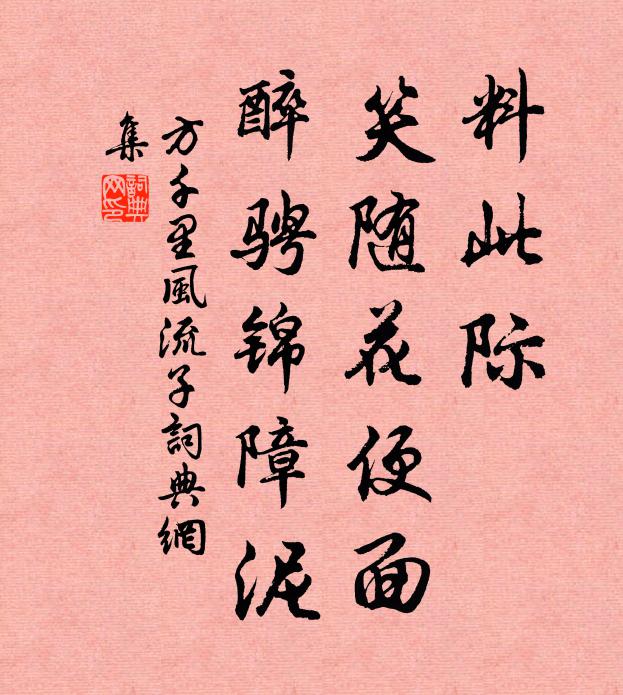 料此际
笑随花便面
醉骋锦障泥
方千里風流子詞典網
集
詞典网印